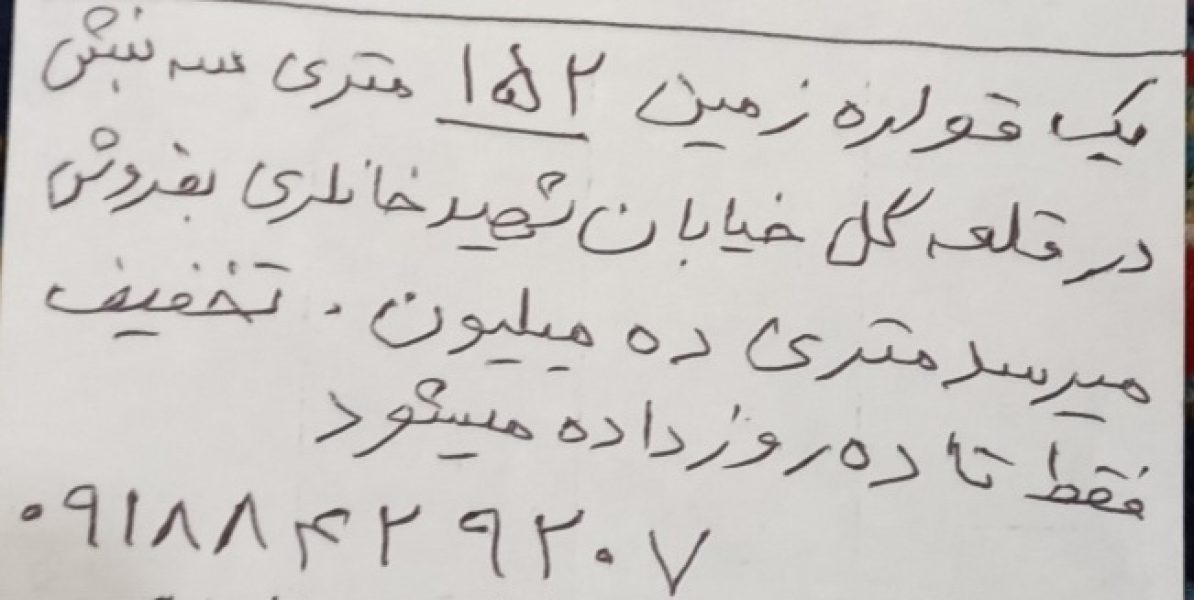 یک قواره زمین ۱۵۲ متری سه نبش
در قلعه گل خیابان شهید خانلری بفروش
میرسد متری ده میلیون . تخفیف
فقط تا ده روز داده میشود
۰۹۱۸۸۴۲۹۲۰۷